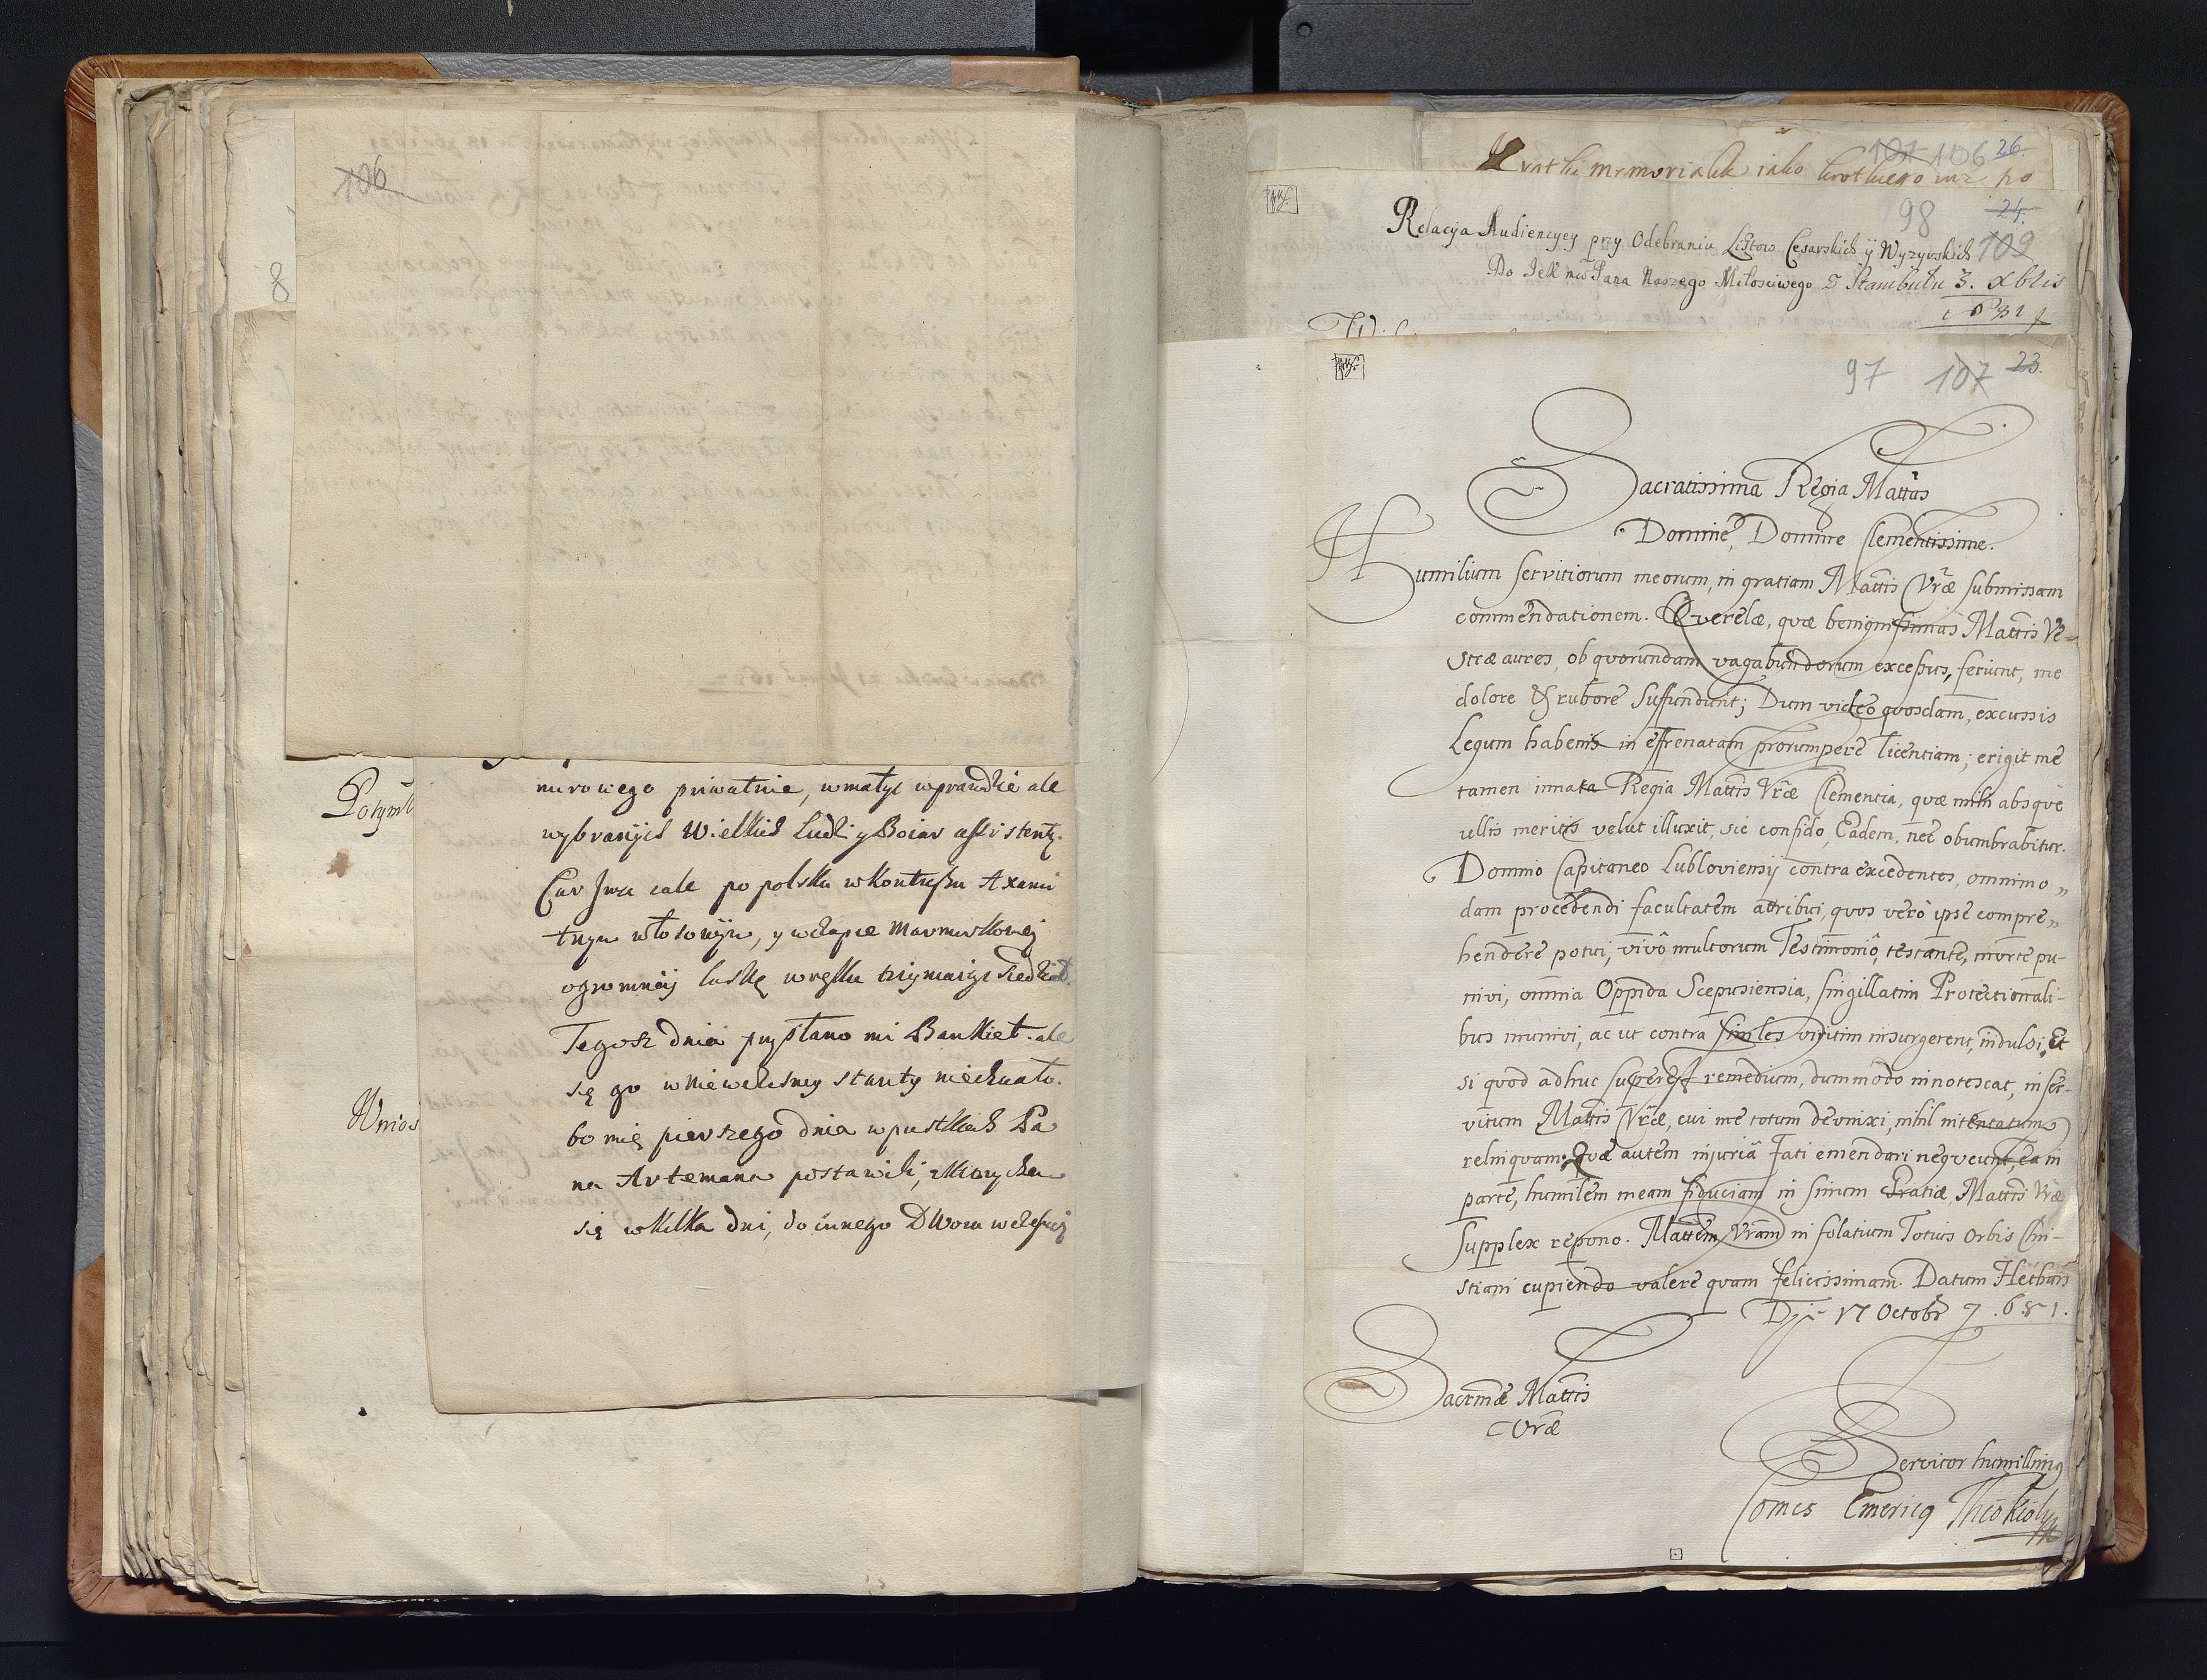 106
8
Potym
murowego priwatnie, wmałyi wprawdzie ale
wybranijch Wielkich Ludzi y Boiar assistentij.
Car Jmci cale po polsku wkontuszu Axami
tnym włosowym, y wczapie Marmurkowej
ogromney laskę wręku trzymaiąc siedział.
Tegosz dnia przysłano mi Bankiet. ale
się go wniewczesney stancij niechciało.
bo mię pierszego dnia wpustkach Pa
na Artemana postawili, zktorych
się wkilka dni, do innego Dworu
Wnios
107 106 26.
Kratki memorialik iako krotkiego po
98 24.
109
Relacyja Audiencyey przy Odebraniu Listow Cesarskich ÿ Wyzyrskich
Do JeKmci Pana Naszego Miłosciwego z Stambułu 3. Xbris
1681
97 107 23.
Sacratissima Regia Mattas
Domine, Domine Clementissime.
Humilium servitiorum meorum, in gratiam Mattis Vrae submissam
commendationem. Querelæ, quæ benignissimas Mattis Ve-
stræ aures, ob quorundam vagabundorum excessus, feriunt, me
dolore & rubore suffundunt; Dum video quosdam, excussis
Legum habenis in effrenatam prorumpere licentiam; erigit me
tamen innata Regia Mattis Vræ Clementia, quæ mihi absque
ullis meritis velut illuxit, sic confido, Eadem, nec obumbrabitur.
Domino Capitaneo Lubloviensij contra excedentes, omnimo„
dam procedendi facultatem attribui, quos vero ipse compre„
hendere potui, vivô multorum Testimoniô, testante, morte pu-
nivi, omnia Oppida Scepusiensia, singillatim Protectionali-
bus munivi, ac ut contra similes viritim insurgerent, indulsi, Et
si quod adhuc superest remedium, dummodo innotescat, in ser-
vitium Mattis Vræ, cui me totum devinxi, nihil intentatum
relinquam; Quæ autem injuriâ Fati emendari nequeunt, Ea in
parte, humilem meam fiduciam in sinum Gratiæ, Mattis Vræ
Supplex repono. Mattem Vram in solatium Totius Orbis Chri-
stiani cupiendo valere quam felicissimam. Datum
Die 17 Octobr 681.
Sacrmæ Mattis
Vræ
Servitor humillimus
Comes Emericus Theokeoly